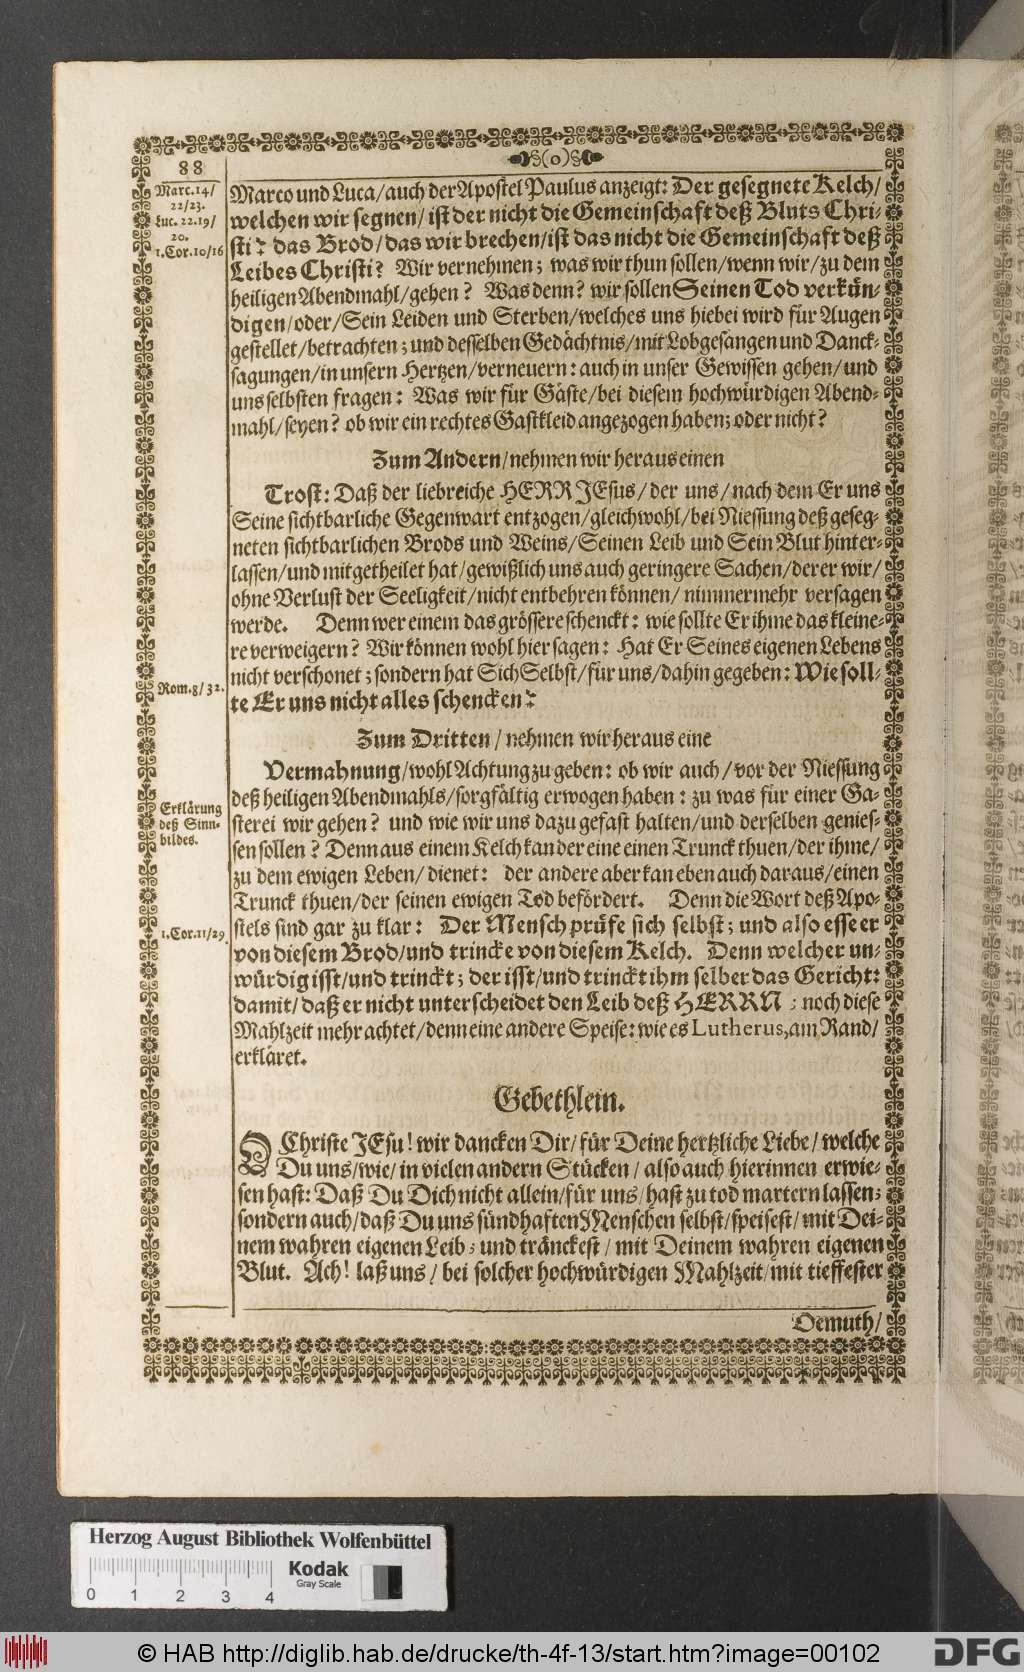 88
(o)
Marc. 14/
22/23.
Luc. 22. 19/
20.
1. Cor. 10/16
Marco und Luca/ auch der Apostel Paulus anzeigt: Der gesegnete Kelch/
welchen wir segnen/ ist der nicht die Gemeinschaft deß Bluts Chri-
sti? das Brod/ das wir brechen/ ist das nicht die Gemeinschaft deß
Leibes Christi? Wir vernehmen; was wir thun sollen/ wenn wir/ zu dem
heiligen Abendmahl/ gehen? Was denn? wir sollen Seinen Tod verkün-
digen/ oder/ Sein Leiden und Sterben/ welches uns hiebei wird für Augen
gestellet/ betrachten; und desselben Gedächtnis/ mit Lobgesängen und Danck-
sagungen/ in unsern Hertzen/ verneuern: auch in unser Gewissen gehen/ und
uns selbsten fragen: Was wir für Gäste/ bei diesem hochwürdigen Abend-
mahl/ seyen? ob wir ein rechtes Gastkleid angezogen haben; oder nicht?
Zum Andern/ nehmen wir heraus einen
Trost: Daß der liebreiche HERR JEsus/ der uns/ nach dem Er uns
Seine sichtbarliche Gegenwart entzogen/ gleichwohl/ bei Niessung deß geseg-
neten sichtbarlichen Brods und Weins/ Seinen Leib und Sein Blut hinter-
lassen/ und mitgetheilet hat/ gewißlich uns auch geringere Sachen/ derer wir/
ohne Verlust der Seeligkeit/ nicht entbehren können/ nimmermehr versagen
werde. Denn wer einem das grössere schenckt: wie sollte Er ihme das kleine-
re verweigern? Wir können wohl hier sagen: Hat Er Seines eigenen Lebens
nicht verschonet; sondern hat Sich Selbst/ für uns/ dahin gegeben: Wie soll-
te Er uns nicht alles schencken?
Rom. 8/ 32.
Zum Dritten/ nehmen wir heraus eine
Vermahnung/ wohl Achtung zu geben: ob wir auch/ vor der Niessung
deß heiligen Abendmahls/ sorgfältig erwogen haben: zu was für einer Ga-
sterei wir gehen? und wie wir uns dazu gefast halten/ und derselben genies-
sen sollen? Denn aus einem Kelch kan der eine einen Trunck thuen/ der ihme/
zu dem ewigen Leben/ dienet: der andere aber kan eben auch daraus/ einen
Trunck thuen/ der seinen ewigen Tod befördert. Denn die Wort deß Apo-
stels sind gar zu klar: Der Mensch prüfe sich selbst; und also esse er
von diesem Brod/ und trincke von diesem Kelch. Denn welcher un-
würdig isst/ und trinckt; der isst/ und trinckt ihm selber das Gericht:
damit/ daß er nicht unterscheidet den Leib deß HERRN; noch diese
Mahlzeit mehr achtet/ denn eine andere Speise: wie es Lutherus, am Rand/
erkläret.
Erklärung
deß Sinn-
bildes.
1. Cor. 11/29.
Gebethlein.
O Christe JEsu! wir dancken Dir/ für Deine hertzliche Liebe/ welche
Du uns/ wie/ in vielen andern Stücken/ also auch hierinnen erwie-
sen hast: Daß Du Dich nicht allein/ für uns/ hast zu tod martern lassen;
sondern auch/ daß Du uns sündhaften Menschen selbst/ speisest/ mit Dei-
nem wahren eigenen Leib; und tränckest/ mit Deinem wahren eigenen
Blut. Ach! laß uns/ bei solcher hochwürdigen Mahlzeit/ mit tieffester
Demuth/
Herzog August Bibliothek Wolfenbüttel
0 1 2 3 4
Kodak
Gray Scale
© HAB http://diglib.hab.de/drucke/th-4f-13/start.htm?image=00102
DFG